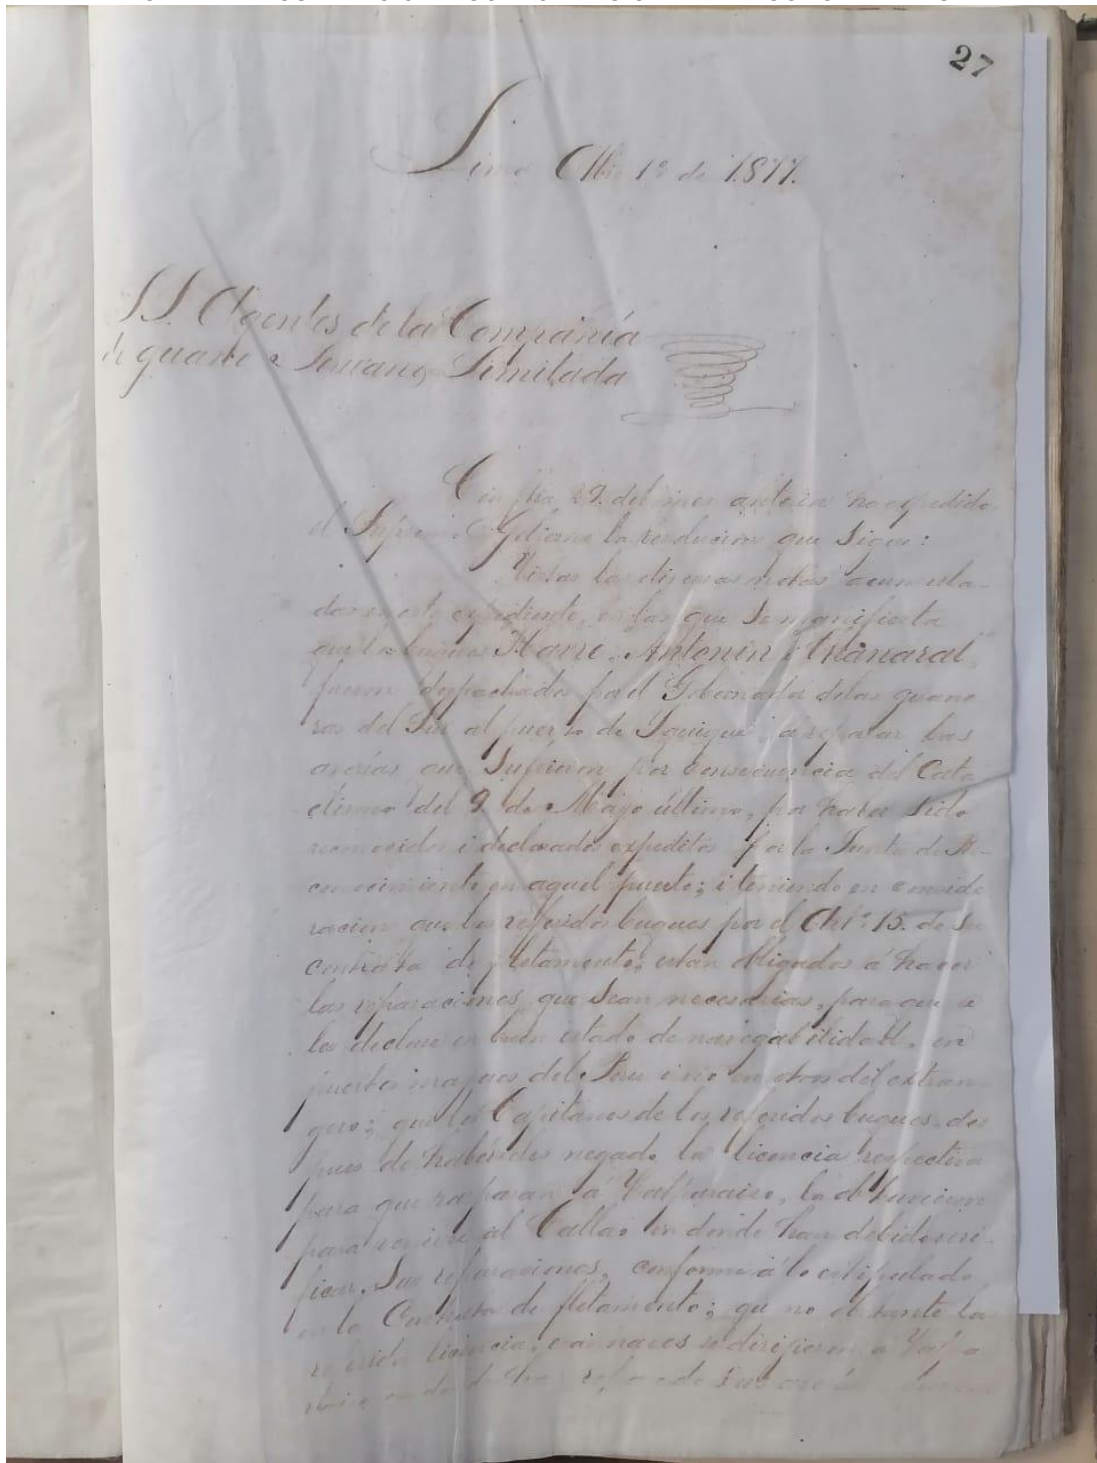 27
Lima 1º de 1877.
SS. Agentes de la Compañía
de guano Peruano Limitada
Con fha 29. del mes anterior ha expedido
el Supremo Gobierno la resolucion que sigue:
Vistas las diversas notas acumula-
das en este expediente, en las que se manifiesta
que los buques "Havre, Antonin i Chañaral"
fueron despachados por el Gobernador de las guane
ras del Sur al puerto de Iquique, a reparar las
averías que sufrieron por consecuencia del Cata
clismo del 9. de Mayo último, por haber sido
reconocidos i declarados expeditos por la Junta de Re-
conocimiento en aquel puerto; i teniendo en conside
racion que los referidos buques por el Artº 15. de su
contrata de fletamento, estan obligados á hacer
las reparaciones que sean necesarias, para que se
les declare en buen estado de navegabilidad, en
puertos del Perú i no en otros del extran-
gero; que los Capitanes de los referidos buques, des
pues de haberseles negado la licencia respectiva
para que zarparan á Valparaiso, la obtuvieron
para venir al Callao en donde han debido veri-
ficar sus reparaciones, conforme á lo estipulado
en la Contrata de fletamento; que no obstante la
referida licencia, naves se dirijieron a Valpa
raiso en donde han sus